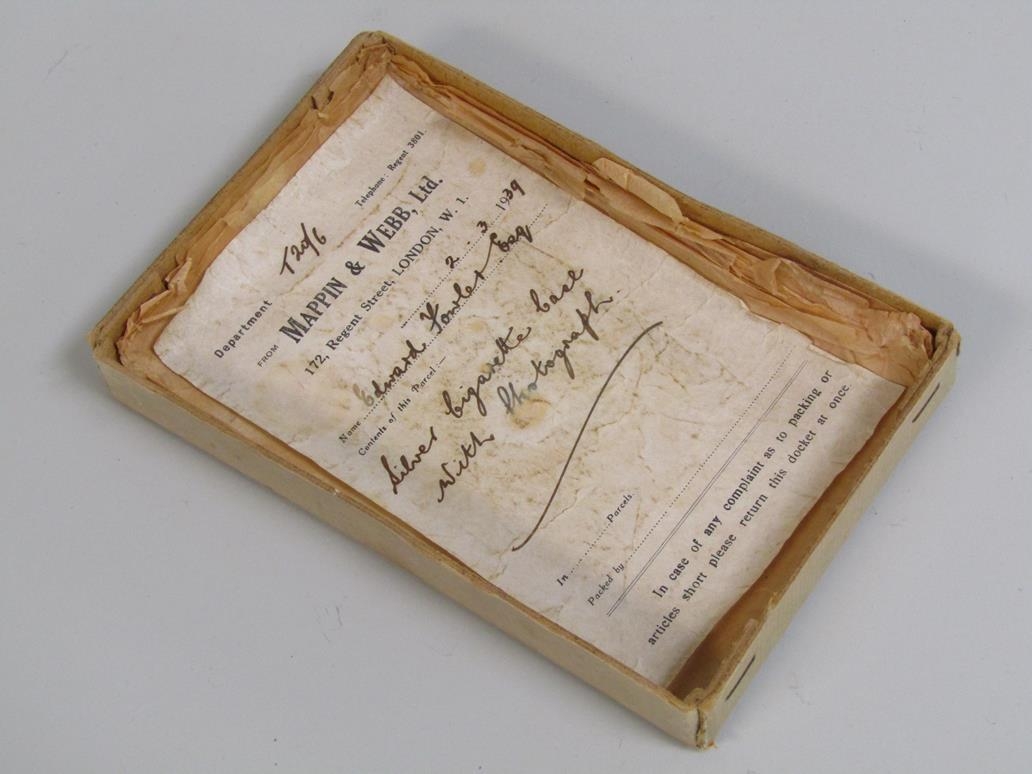 Telephone: Regent 3801.
Department
FROM MAPPIN & WEBB, Ltd.
172, Regent Street, LONDON, W. 1.
2. 3. 1939
Name Edward Fowler Esq
Contents of this Parcel:—
Silver Cigarette Case
with Photograph.
In Parcels.
Packed by
In case of any complaint as to packing or
articles short please return this docket at once